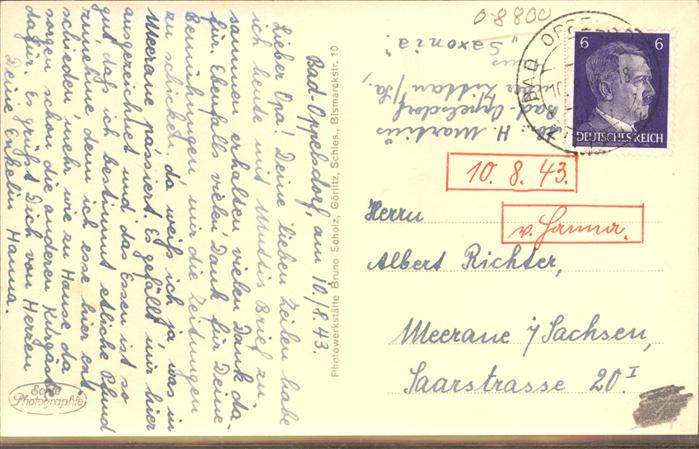 Bad-Oppelsdorf, am 10./8.43.
Lieber Opa! Deine lieben Zeilen habe
ich heute mit Muttis Brief zu-
sammen erhalten, vielen Dank da-
für. Ebenfalls vielen Dank für Deine
Bemühungen, mir die Zeitungen
zu schicken, da weiß ich ja, was in
Meerane passiert. Es gefällt mir hier
ausgezeichnet und das Essen ist so
gut, daß ich bestimmt etliche Pfund
zunehme, denn ich esse hier ent-
schieden mehr wie zu Hause, da
sagen schon die anderen Kurgäste
dafür. Es grüßt Dich von Herzen
Deine Enkelin Hanna.
Photowerkstätte Bruno Scholz, Görlitz, Schles., Bismarckstr. 10
Echte
Photographie
08800
H. Martius
Bad-Oppelsdorf
bei Zittau/Sa.,
Haus
"Saxonia".
BAD OPPELSDORF
6 6
DEUTSCHES REICH
10. 8. 43.
v. Hanna.
Herrn
Albert Richter,
Meerane i/Sachsen,
Saarstrasse 20 I